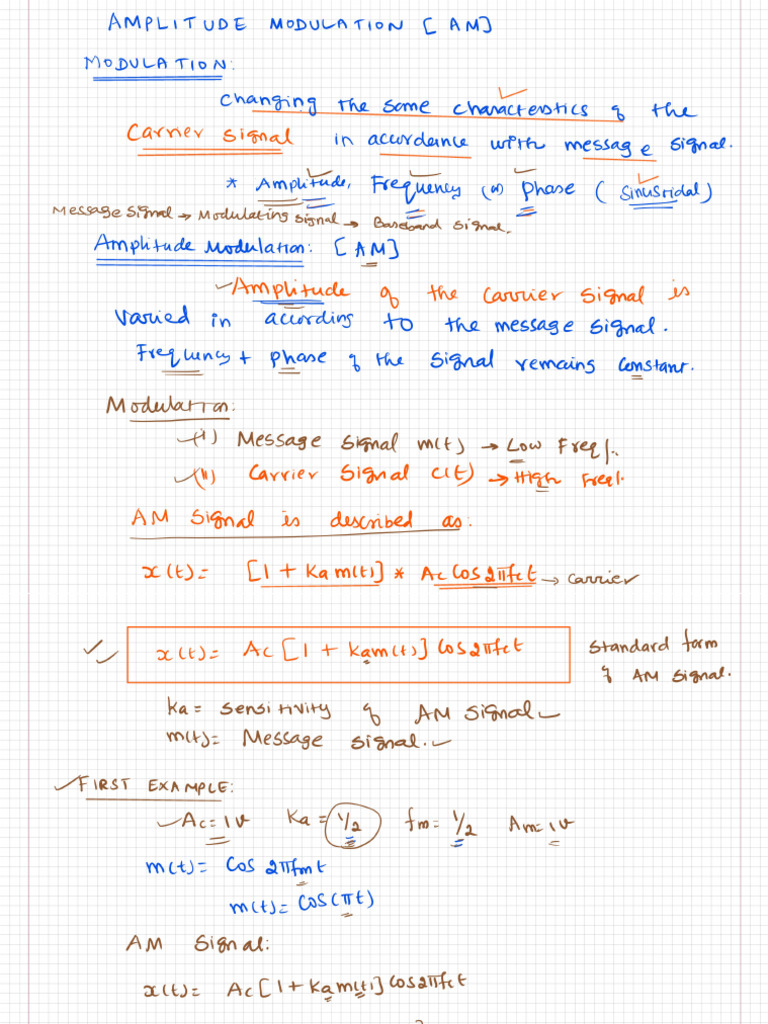 AMPLITUDE MODULATION [AM]
MODULATION:
changing the some characteristics of the
Carrier signal in accordance with message signal.
* Amplitude, Frequency (or) phase (sinusoidal)
Message signal → Modulating signal → Baseband signal.
Amplitude Modulation: [AM]
Amplitude of the carrier signal is
varied in according to the message signal.
Frequency + phase of the signal remains constant.
Modulation:
(i) Message signal m(t) → Low Freq.
(ii) Carrier signal c(t) → High Freq.
AM signal is described as:
x(t) = [1 + ka m(t)] * Ac cos 2πfct → carrier
x(t) = Ac [1 + kam(t)] cos 2πfct
standard form
of AM signal.
ka = sensitivity of AM signal
m(t) = Message signal.
FIRST EXAMPLE:
Ac = 1v ka = 1/2 fm = 1/2 Am = 1v
m(t) = cos 2πfmt
m(t) = cos(πt)
AM signal:
x(t) = Ac [1 + kam(t)] cos 2πfct